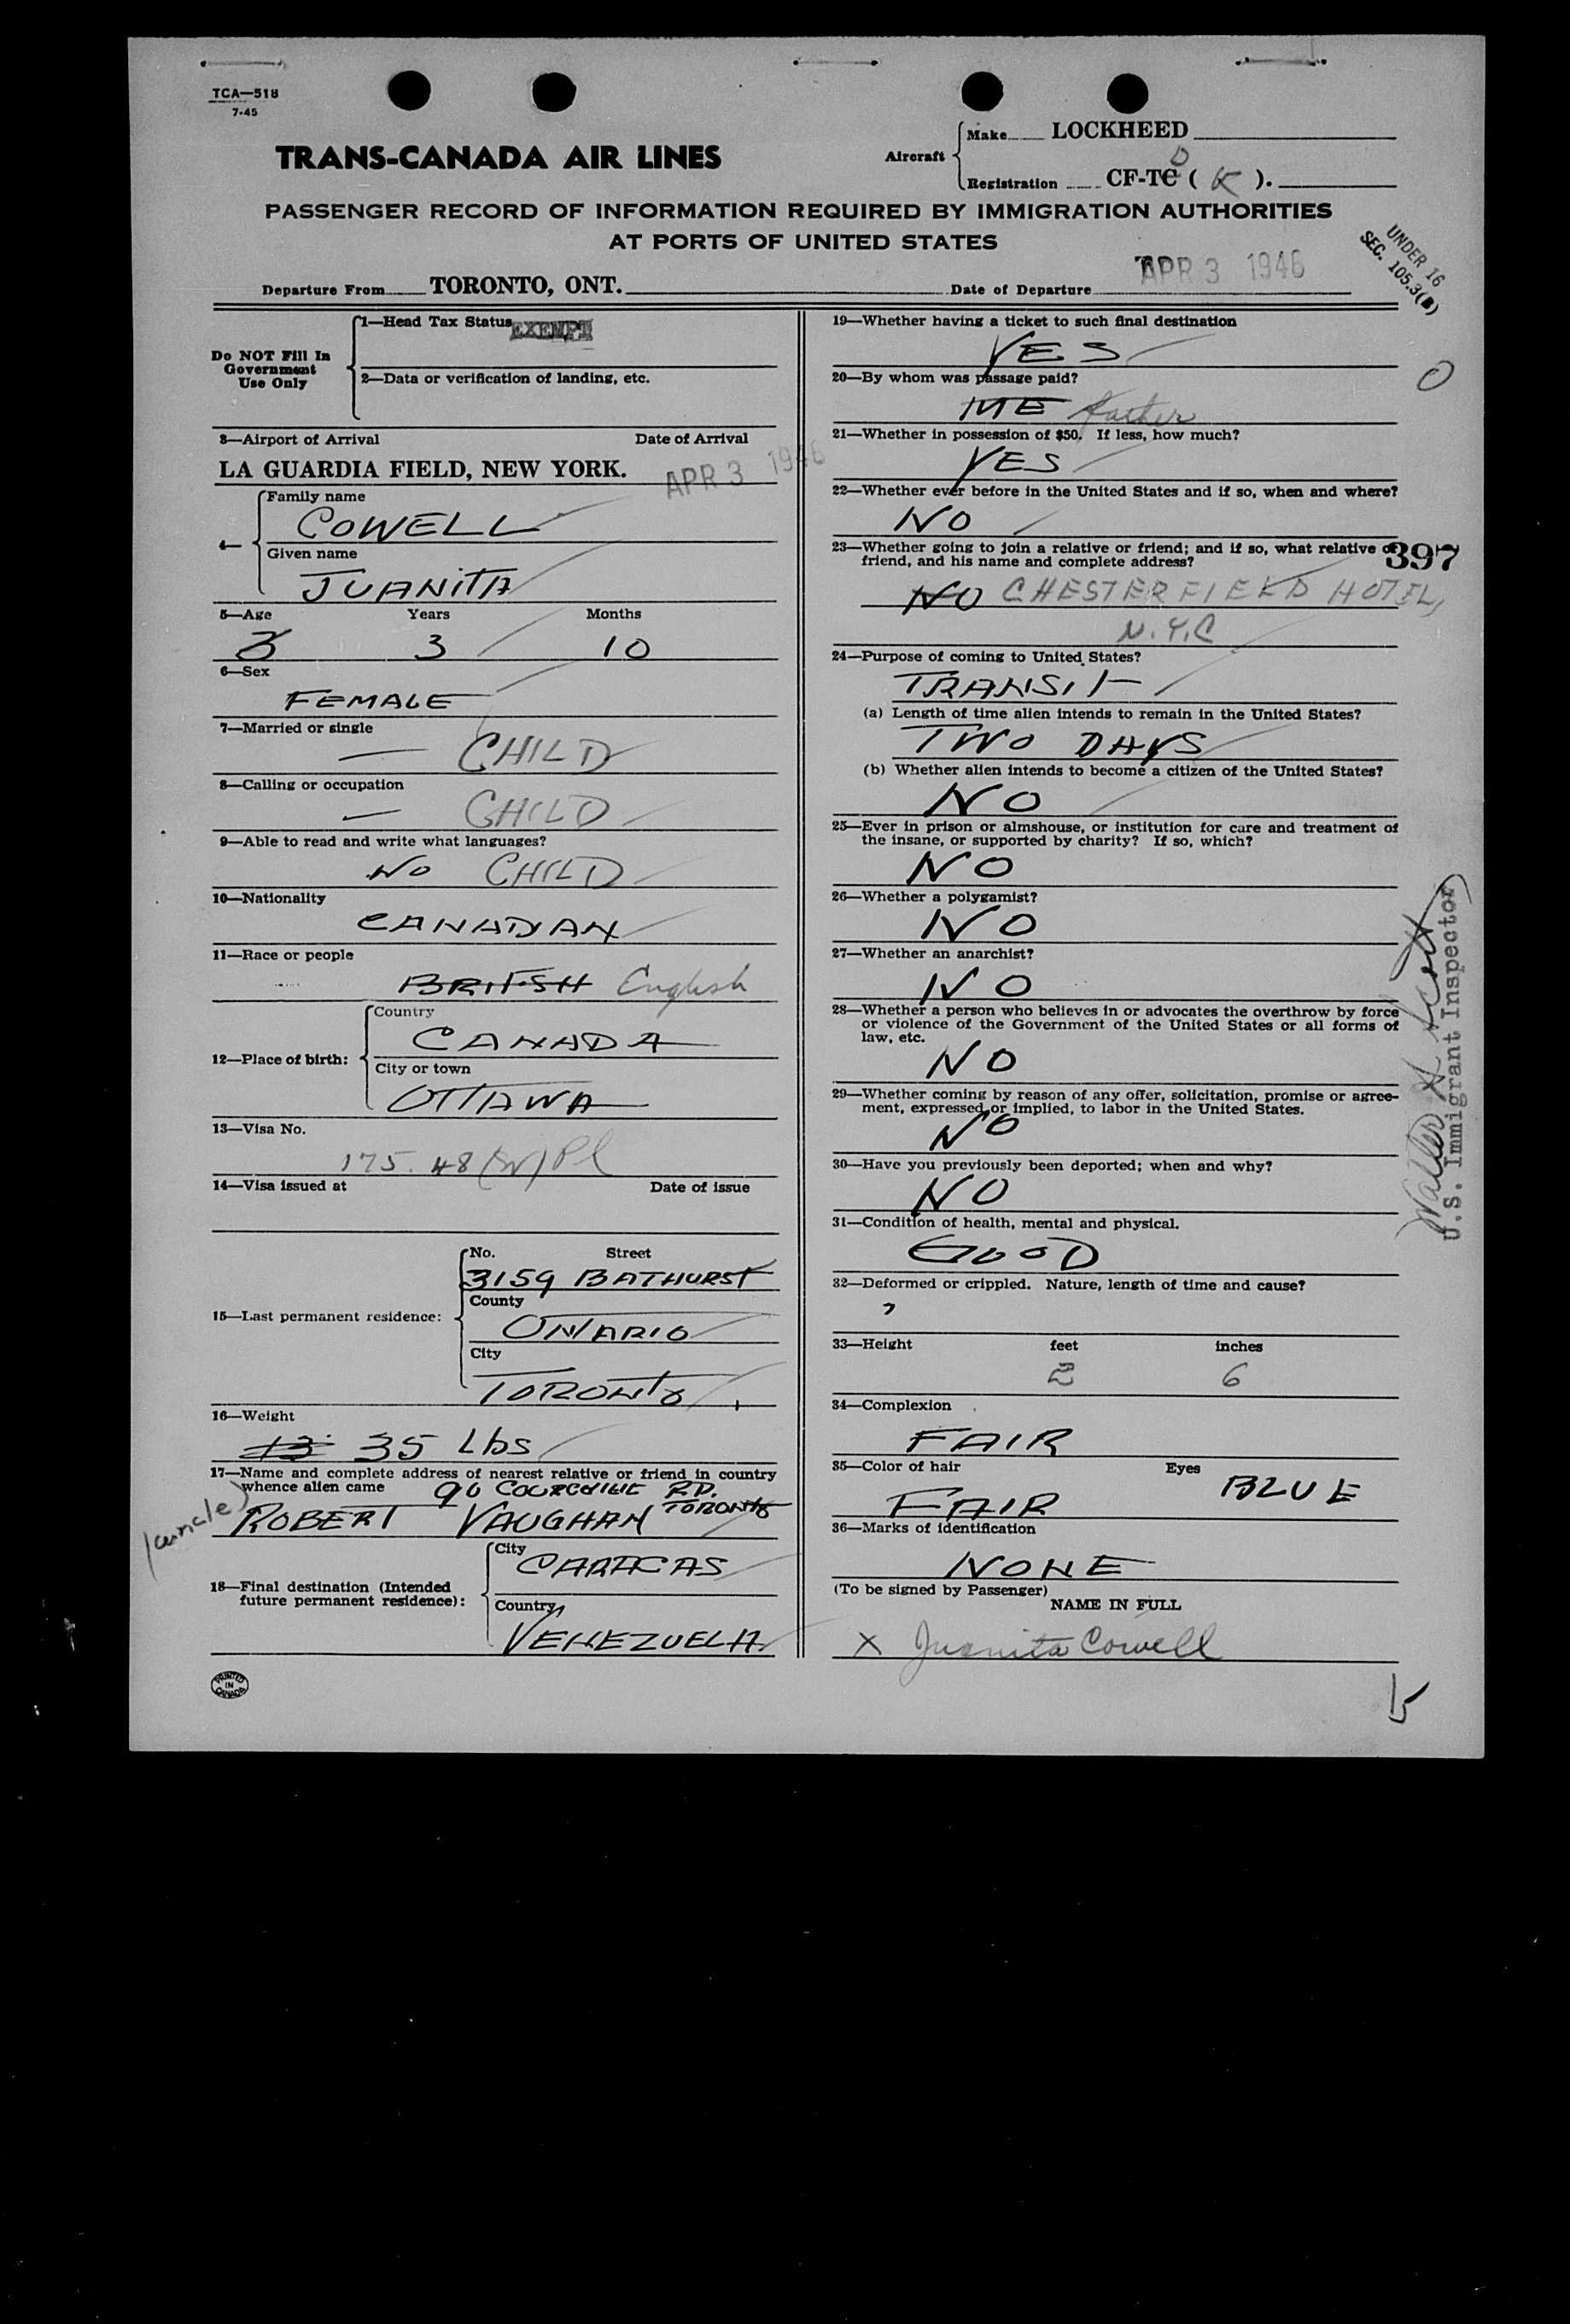 TCA—518
7-45
TRANS-CANADA AIR LINES
Aircraft
Make LOCKHEED
Registration CF-TC D ( K ).
PASSENGER RECORD OF INFORMATION REQUIRED BY IMMIGRATION AUTHORITIES
AT PORTS OF UNITED STATES
UNDER 16
SEC. 105.3(B)
Departure From TORONTO, ONT. Date of Departure APR 3 1946
Do NOT Fill In
Government
Use Only
1—Head Tax Status EXEMPT
2—Data or verification of landing, etc.
3—Airport of Arrival Date of Arrival
LA GUARDIA FIELD, NEW YORK. APR 3 1946
4—
Family name
COWELL
Given name
JUANITA
5—Age Years Months
3 10
6—Sex
FEMALE
7—Married or single
— CHILD
8—Calling or occupation
— CHILD
9—Able to read and write what languages?
NO CHILD
10—Nationality
CANADIAN
11—Race or people
BRITISH English
12—Place of birth:
Country
CANADA
City or town
OTTAWA
13—Visa No.
175. 48 (W) Pl
14—Visa issued at Date of issue
15—Last permanent residence:
No. Street
3159 BATHURST
County
ONTARIO
City
TORONTO
16—Weight
13 35 Lbs
17—Name and complete address of nearest relative or friend in country
whence alien came 90 RD.
(uncle) ROBERT VAUGHAN TORONTO
18—Final destination (Intended
future permanent residence):
City
CARACAS
Country
VENEZUELA
PRINTED
IN
CANADA
19—Whether having a ticket to such final destination
YES
20—By whom was passage paid?
ME father
21—Whether in possession of $50. If less, how much?
YES
22—Whether ever before in the United States and if so, when and where?
NO
23—Whether going to join a relative or friend; and if so, what relative or
friend, and his name and complete address?
397
NO CHESTERFIELD HOTEL,
N.Y.C
24—Purpose of coming to United States?
TRANSIT
(a) Length of time alien intends to remain in the United States?
TWO DAYS
(b) Whether alien intends to become a citizen of the United States?
NO
25—Ever in prison or almshouse, or institution for care and treatment of
the insane, or supported by charity? If so, which?
NO
26—Whether a polygamist?
NO
27—Whether an anarchist?
NO
28—Whether a person who believes in or advocates the overthrow by force
or violence of the Government of the United States or all forms of
law, etc.
NO
29—Whether coming by reason of any offer, solicitation, promise or agree-
ment, expressed or implied, to labor in the United States.
NO
30—Have you previously been deported; when and why?
NO
31—Condition of health, mental and physical.
GOOD
32—Deformed or crippled. Nature, length of time and cause?
33—Height feet inches
2 6
34—Complexion
FAIR
35—Color of hair Eyes
FAIR BLUE
36—Marks of identification
NONE
(To be signed by Passenger)
NAME IN FULL
X Juanita Cowell
Walter A Scott
U.S. Immigrant Inspector